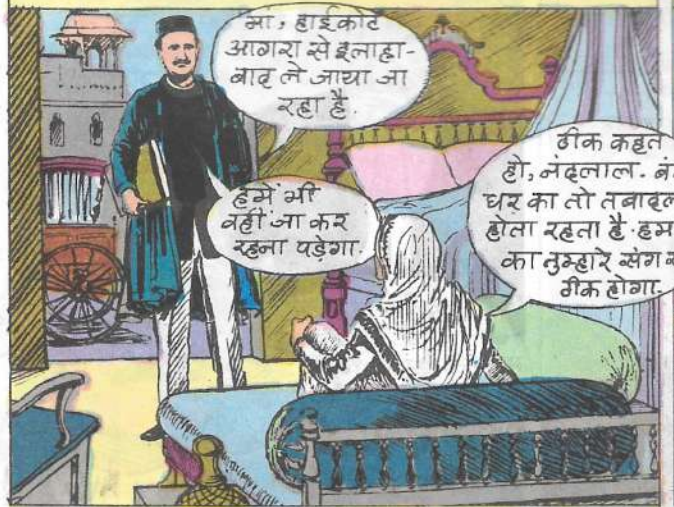 मां, हाईकोर्ट
आगरा से इलाहा-
बाद ले जाया जा
रहा है.
हमें भी
वहीं जा कर
रहना पड़ेगा.
ठीक कहते
हो, नंदलाल.
घर का तो तबादला
होता रहता है. हम
का तुम्हारे संग
ठीक होगा.